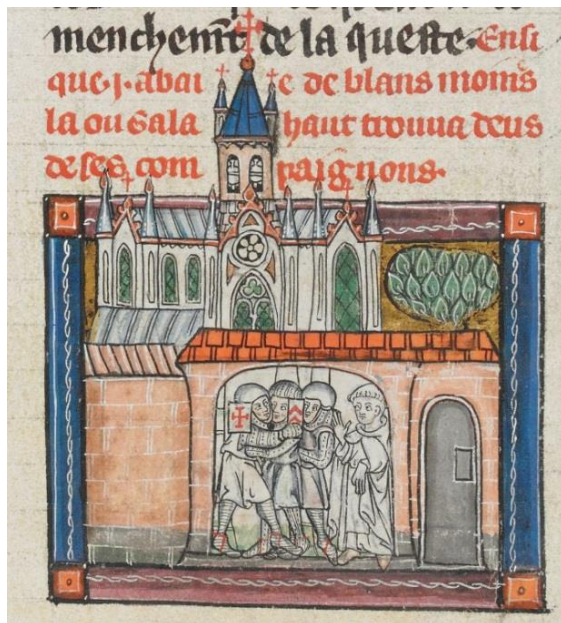 menchem̄t de la queste. Ensi
que .j. abaie de blans moin̄s
la ou Galahaut trouua deus
de ses compaigñons.